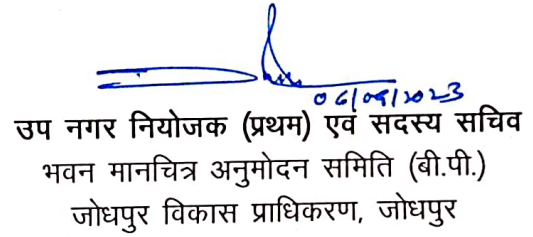 06/09/2023
उप नगर नियोजक (प्रथम) एवं सदस्य सचिव
भवन मानचित्र अनुमोदन समिति (बी.पी.)
जोधपुर विकास प्राधिकरण, जोधपुर